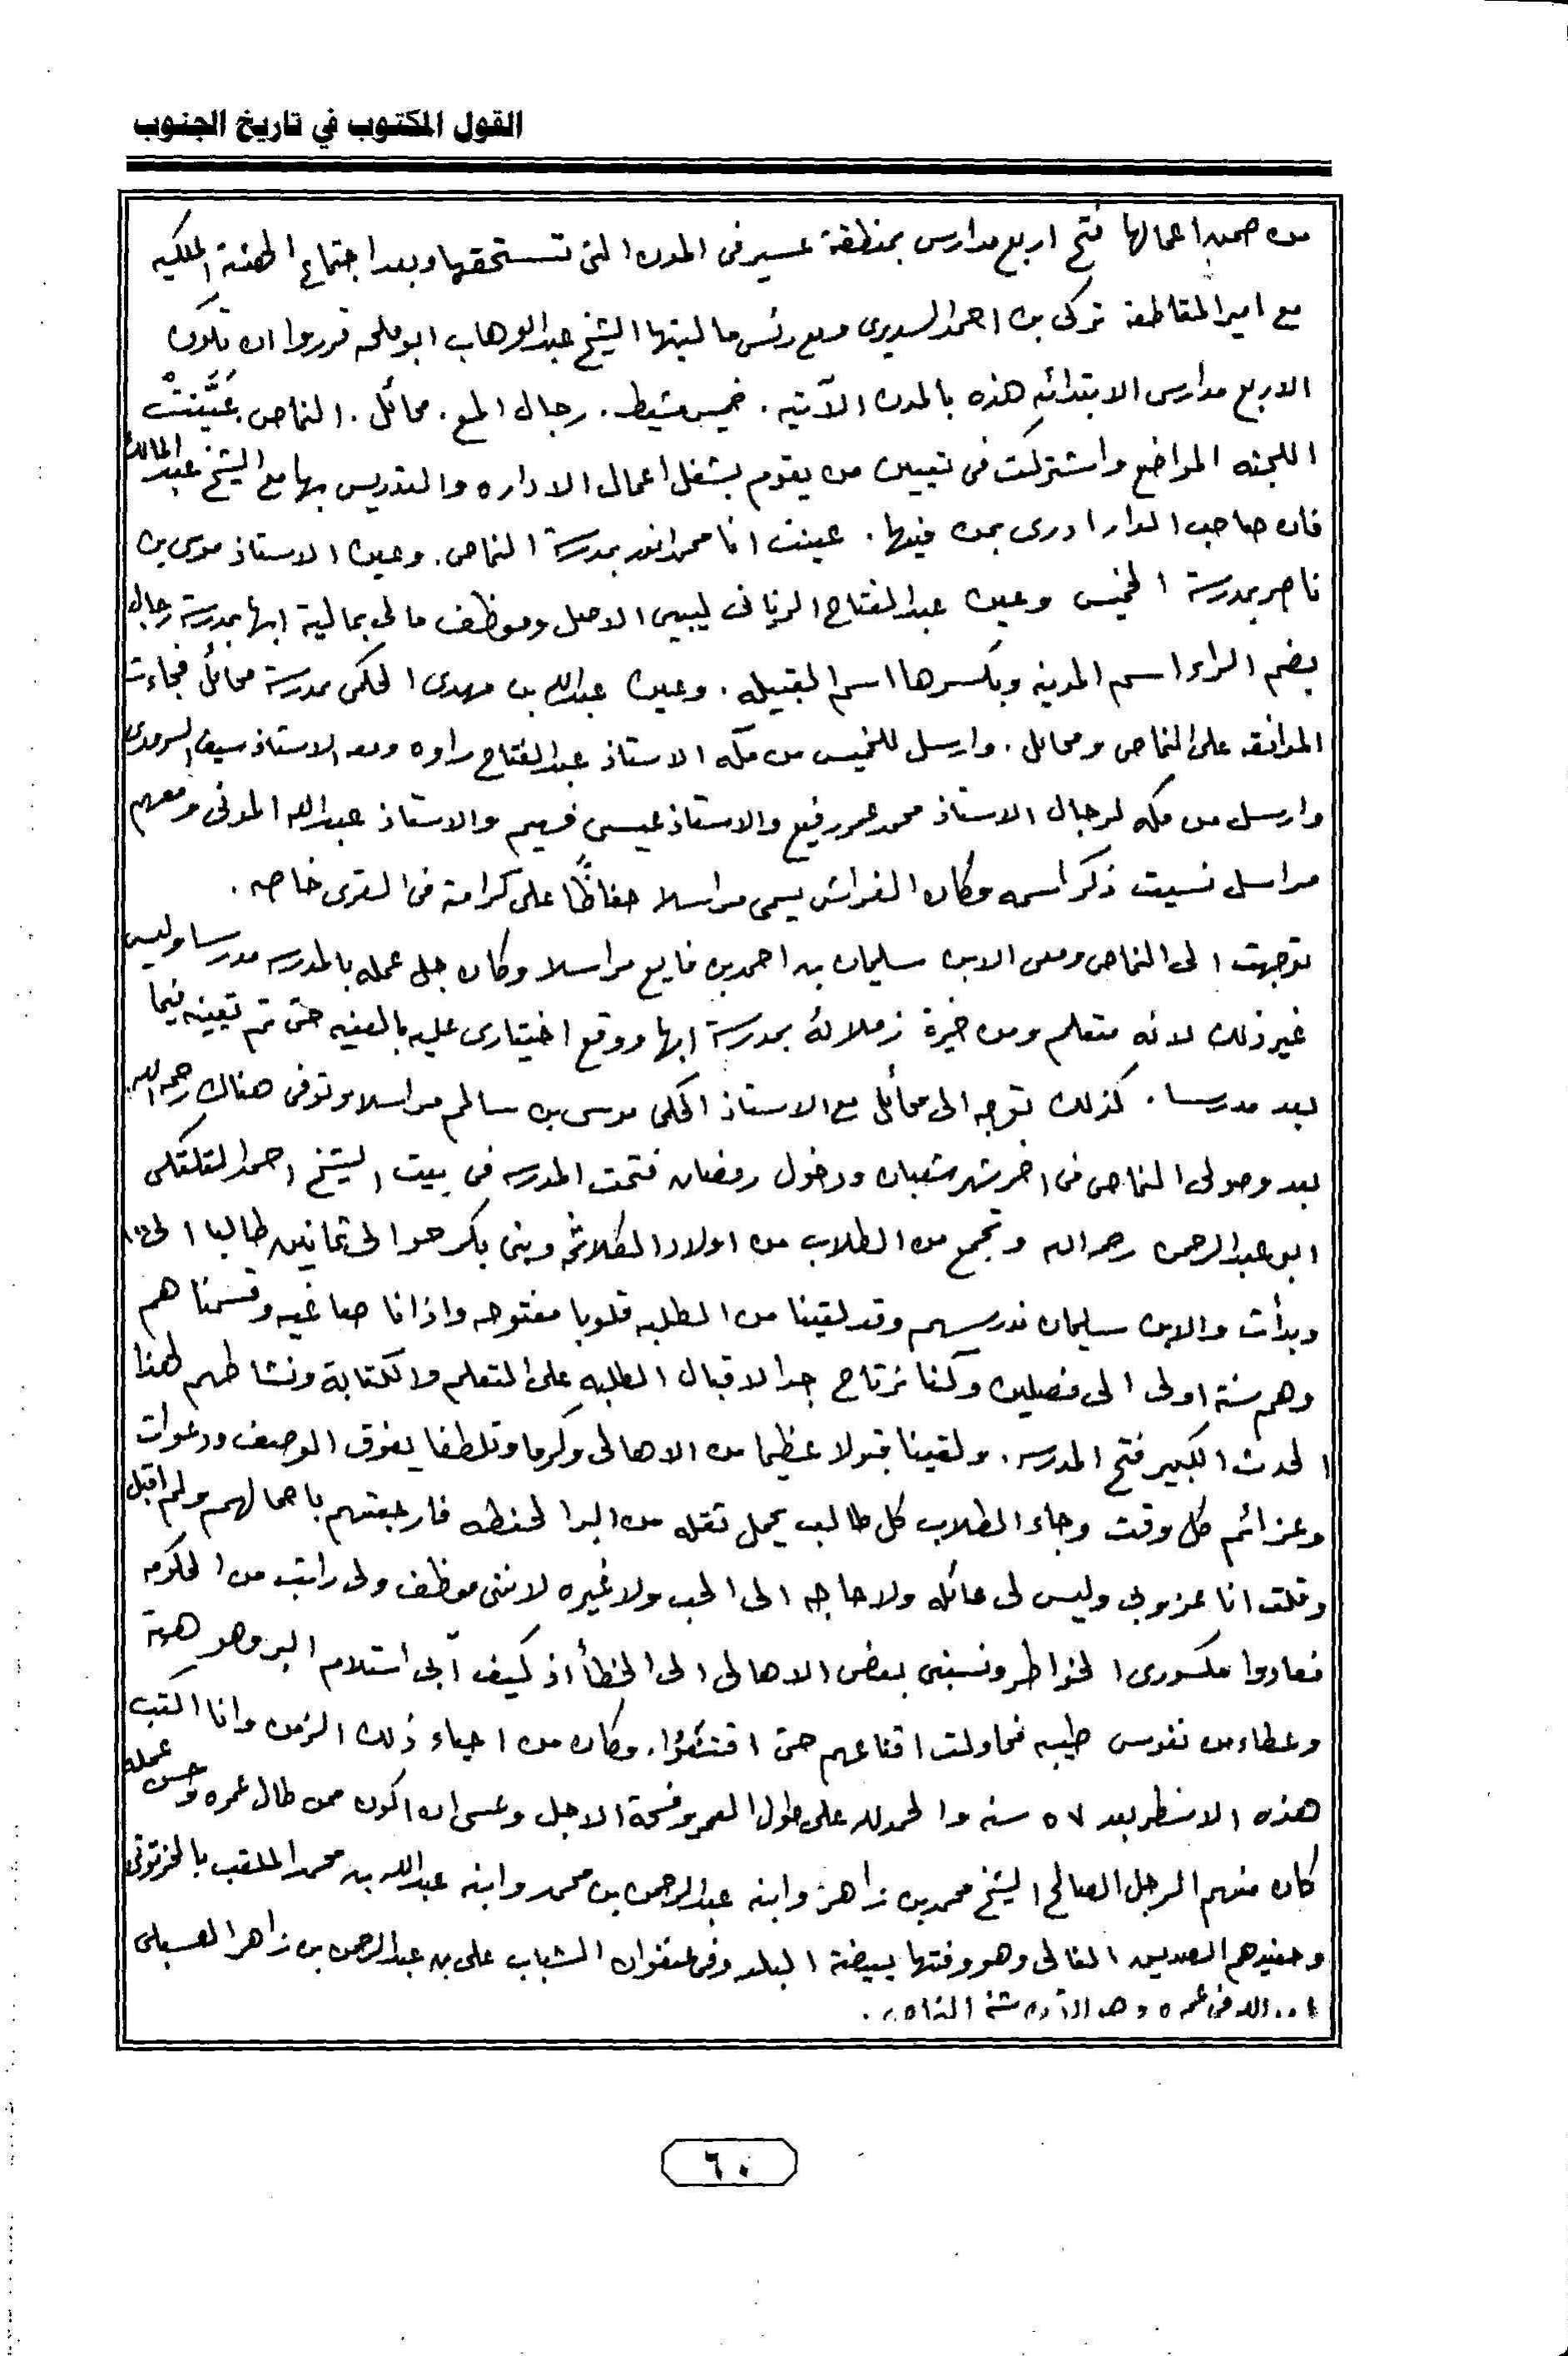 القول المكتوب في تاريخ الجنوب
من ضمن اعمالها فتح اربع مدارس بمنطقة عسير فى المدن التى تستحقها وبعد اجتماع الهيئة الملكيه
مع امير المقاطعة تركى بن احمد السديرى ومع رئس ماليتها الشيخ عبد الوهاب ابو ملحه قرروا ان تكون
الاربع مدارس الابتدائه هذه بالمدن الآتيه . خميس مشيط . رجال المع . محائل . النماص . عَيَّنتْ
اللجنه المواضع واشتركت فى تعيين من يقوم بشغل اعمال الاداره والتدريس بها مع الشيخ عبد المالك
فان صاحب الدار ادرى بمن فيها . عينت انا محمد انور بمدرسة النماص . وعين الاستاذ موسى بن
ناصر بمدرسة الخميس وعين عبد الفتاح الزيانى ليبيى الاصل وموظف مالى بمالية ابها بمدرسة رجال
بضم الراء اسم المدينه وبكسرها اسم القبيله . وعين عبدالله بن مهدى الحكمى بمدرسة محائل فجاءت
الموافقه على النماص ومحائل . وارسل للخميس من مكه الاستاذ عبد الفتاح راوه ومعه الاستاذ سيف السرمدى
وارسل من مكه لرجال الاستاذ محمد عمر رفيع والاستاذ عيسى فهيم والاستاذ عبدالله المونى ومعهم
مراسل نسيت ذكر اسمه وكان الفراش يسمى مراسلا حفاظًا على كرامة فى القرى خاصه .
توجهت الى النماص ومعى الابن سليمان بن احمد بن فايع مراسلا وكان جل عمله بالمدرسه مدرسا وليس
غير ذلك لانه متعلم ومن خيرة زملائه بمدرسة ابها ووقع اختيارى عليه بالعنيه حتى تم تعيينه فيما
بعد مدرسا . كذلك توجه الى محائل مع الاستاذ الحكمى موسى بن سالم مراسلا وتوفى هناك رحمه الله
بعد وصولى النماص فى اخر شهر شعبان ودخول رمضان فتحت المدرسه فى بيت الشيخ احمد القلقلى
ابو عبدالرحمن رحمه الله وتجمع من الطلاب من اولاد الكلاثمه وبنى بكر حوالى ثمانين طالبا الى
وبدأت والابن سليمان ندرسهم وقد لقينا من الطلبه قلوبا مفتوحه واذانا صاغيه وقسمناهم
وهم سنة اولى الى فصلين وكنا نرتاح جدا لاقبال الطلبه على التعلم والكتابة ونشاطهم لهذا
الحدث الكبير فتح المدرسه . ولقينا قبولا عظيما من الاهالى وكرما وتلطفا يفوق الوصف ودعوات
وعزائم كل وقت وجاء الطلاب كل طالب يحمل ثقله من البر الحنطه فارجعتهم باحمالهم ولم اقبل
وقلت انا عزوبى وليس لى عائله ولا حاجه الى الحب ولا غيره لاننى موظف ولى راتب من الحكومه
فعادوا مكسورى الخواطر ونسبنى بعض الاهالى الى الخطأ اذ كيف آبى استلام البر وهو هبة
وعطاء من نفوس طيبه فحاولت اقناعهم حتى اقتنعوا . وكان من احياء ذلك الزمن وانا اكتب
هذه الاسطر بعد ٥٧ سنه والحمد لله على طول العمر وفسحة الاجل وعسى ان اكون ممن طال عمره وحسن عمله
كان منهم الرجل الصالح الشيخ محمد بن زاهر وابنه عبدالرحمن بن محمد وابنه عبدالله بن محمد الملقب بالخرتونى
وحفيدهم الصديق الغالى وهو وقتها بيضة البلد وفى عنفوان الشباب على بن عبدالرحمن بن زاهر العسبلى
٦٠